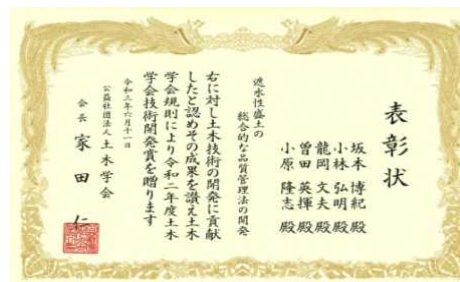 表彰状
坂本博紀殿
小林弘明殿
龍岡文夫殿
曽田英揮殿
小原隆志殿
遮水性盛土の
総合的な品質管理法の開発
右に対し土木技術の開発に貢献
したと認めその成果を讃え土木
学会規則により令和二年度土木
学会技術開発賞を贈ります
令和三年六月十一日
公益社団法人土木学会
会長 家田仁